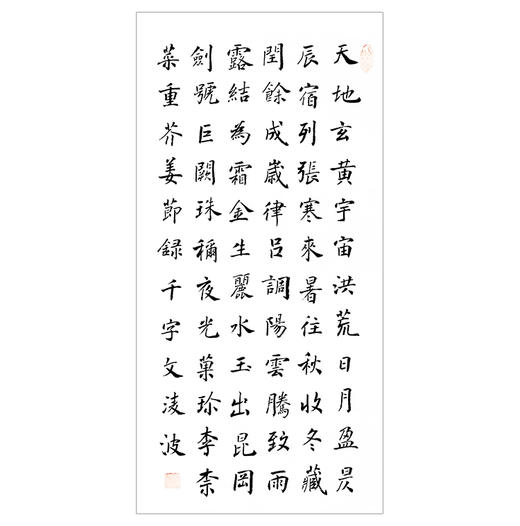 天地玄黄宇宙洪荒日月盈昃
辰宿列張寒來暑往秋收冬藏
閏餘成歲律呂調陽雲騰致雨
露結為霜金生麗水玉出昆岡
劍號巨闕珠稱夜光菓珍李柰
菜重芥姜節録千字文淩波